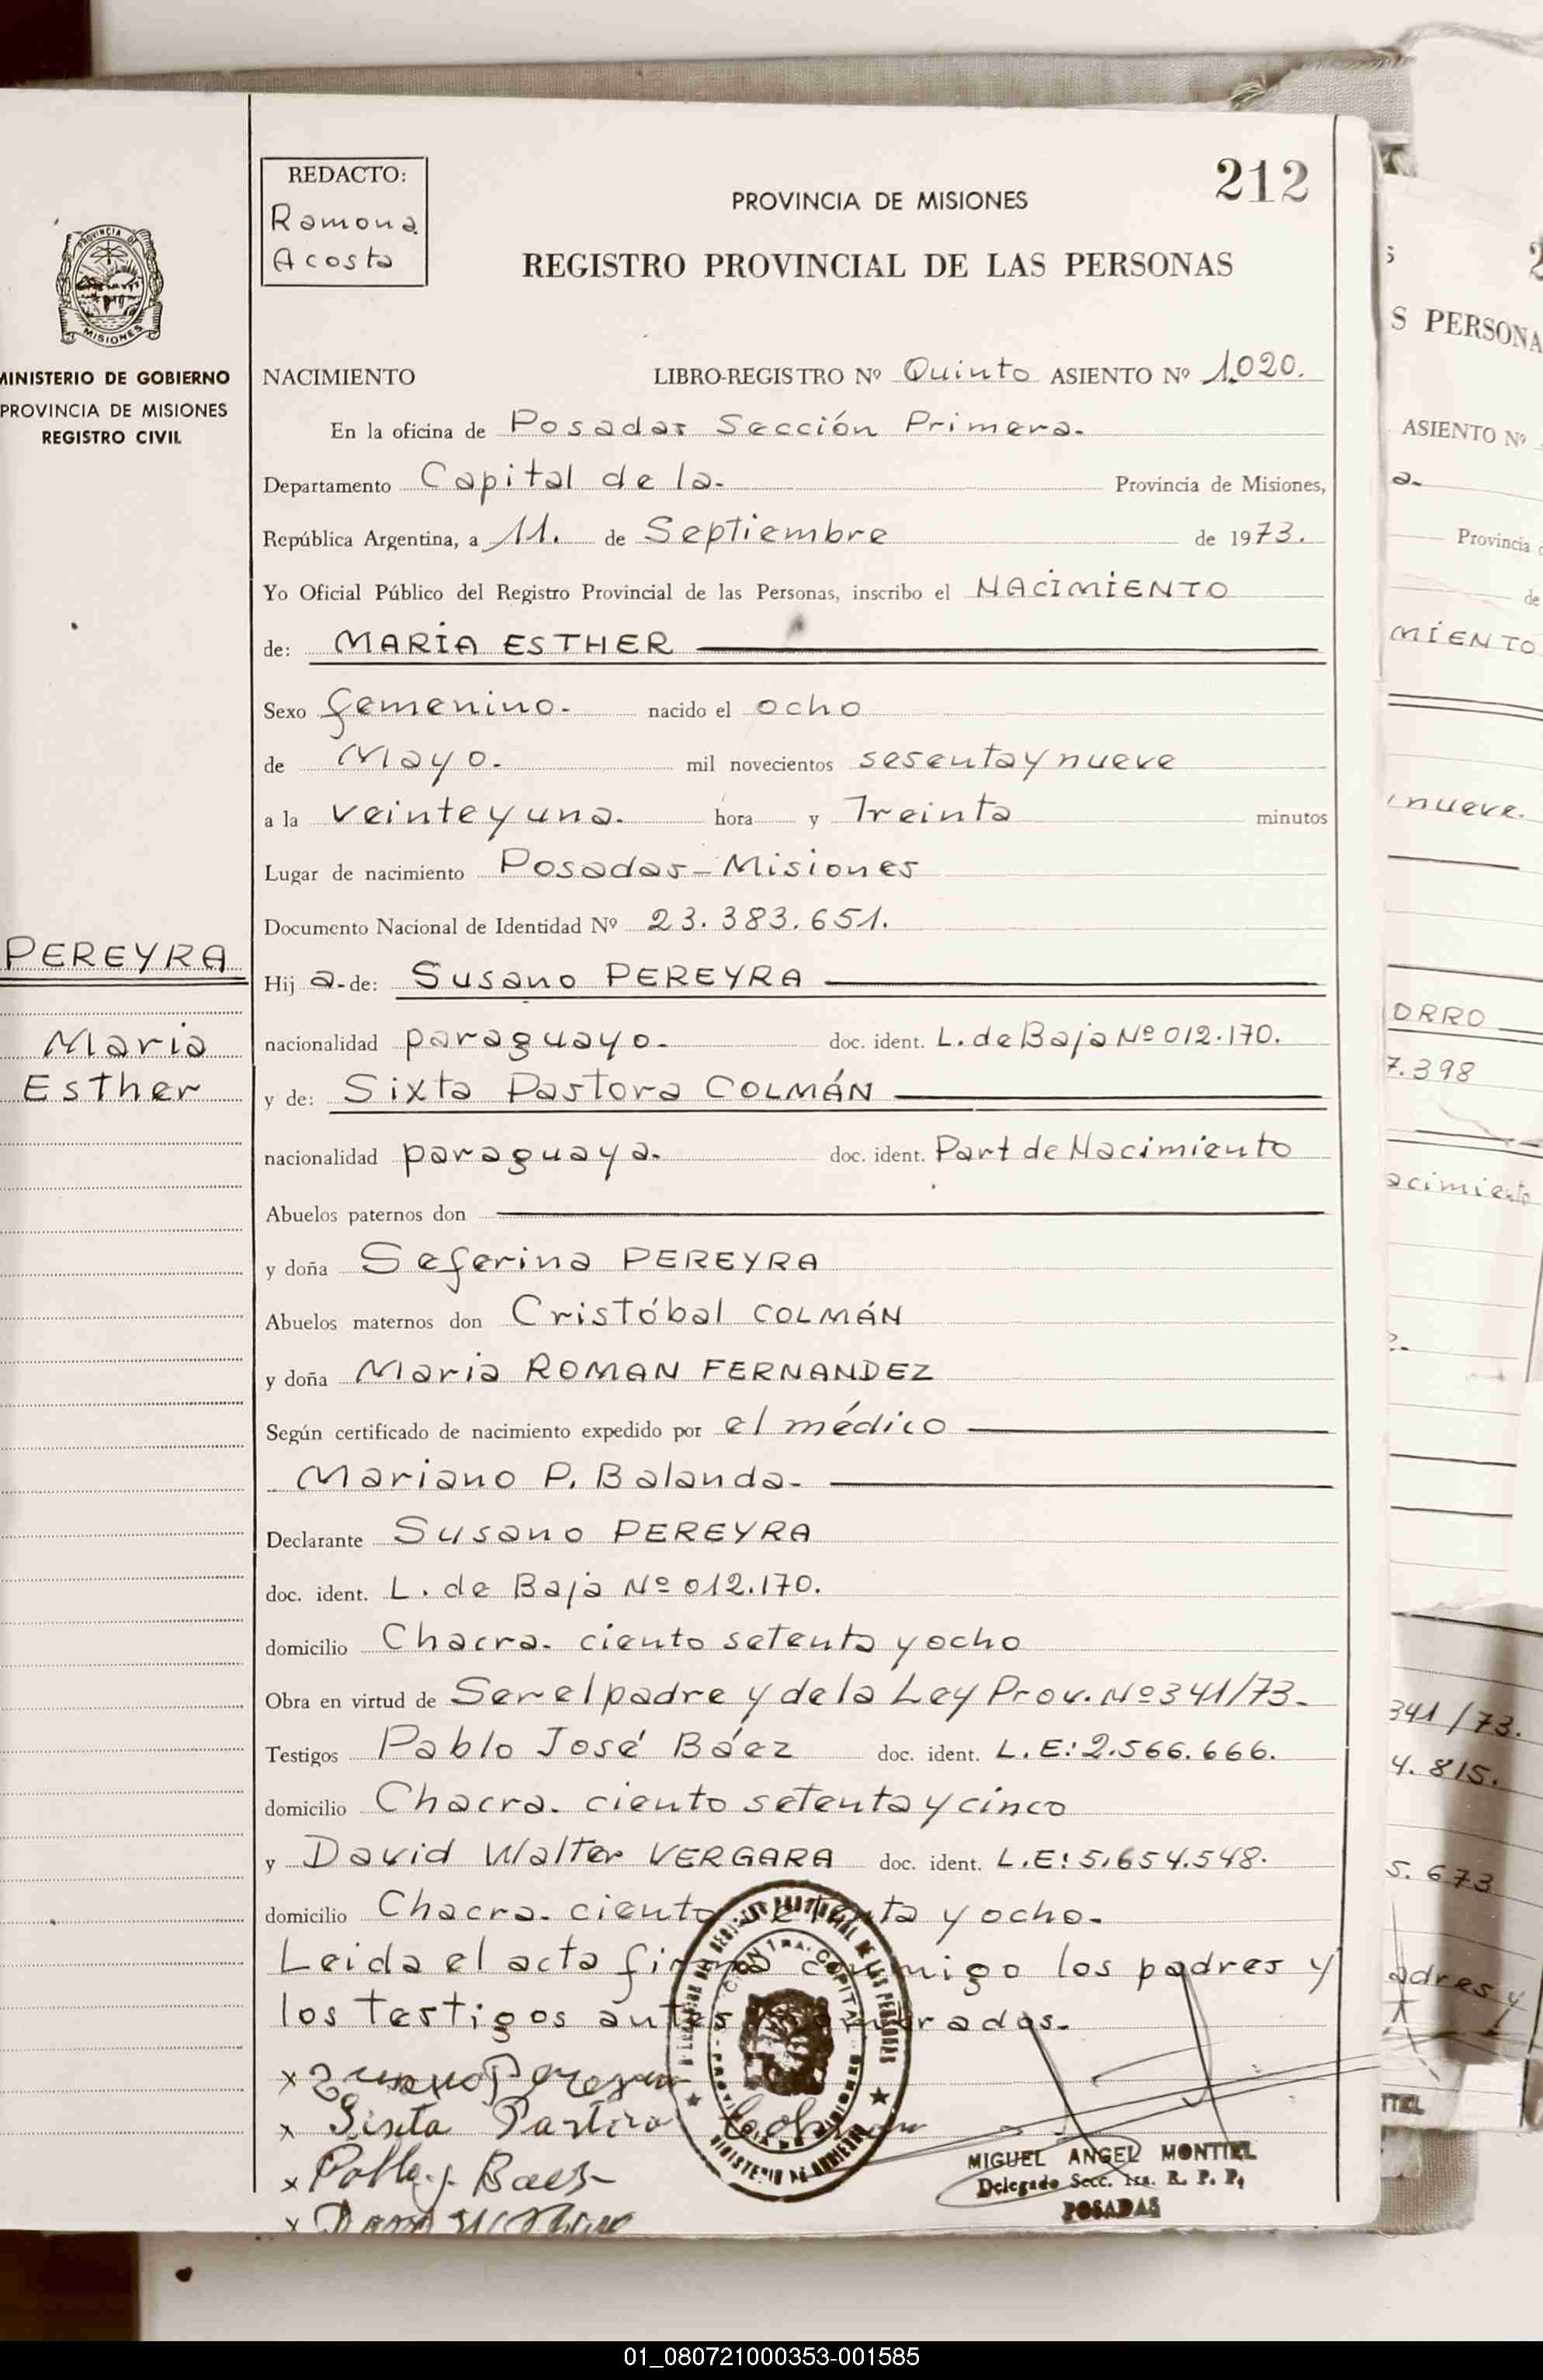 REDACTO:
Ramona
Acosta
212
PROVINCIA DE MISIONES
REGISTRO PROVINCIAL DE LAS PERSONAS
PROVINCIA DE
MISIONES
MINISTERIO DE GOBIERNO
PROVINCIA DE MISIONES
REGISTRO CIVIL
NACIMIENTO LIBRO-REGISTRO Nº Quinto ASIENTO Nº 1.020.
En la oficina de Posadas Sección Primera.
Departamento Capital de la. Provincia de Misiones,
República Argentina, a 11. de Septiembre de 1973.
Yo Oficial Público del Registro Provincial de las Personas, inscribo el NACIMIENTO
de: MARIA ESTHER
Sexo femenino. nacido el ocho
de Mayo. mil novecientos sesenta y nueve
a la veinte y una. hora y Treinta minutos
Lugar de nacimiento Posadas-Misiones
Documento Nacional de Identidad Nº 23.383.651.
PEREYRA
Maria
Esther
Hij a. de: Susano PEREYRA
nacionalidad paraguayo. doc. ident. L. de Baja Nº 012.170.
y de: Sixta Pastora COLMÁN
nacionalidad paraguaya. doc. ident. Part de Nacimiento
Abuelos paternos don
y doña Seferina PEREYRA
Abuelos maternos don Cristóbal COLMÁN
y doña Maria ROMAN FERNANDEZ
Según certificado de nacimiento expedido por el médico
Mariano P. Balanda.
Declarante Susano PEREYRA
doc. ident. L. de Baja Nº 012.170.
domicilio Chacra. ciento setenta y ocho
Obra en virtud de Ser el padre y de la Ley Prov. Nº 341/73.
Testigos Pablo José Báez doc. ident. L.E: 2.566.666.
domicilio Chacra. ciento setenta y cinco
y David Walter VERGARA doc. ident. L.E: 5.654.548.
domicilio Chacra. ciento setenta y ocho.
Leida el acta firma conmigo los padres y
los testigos antes nombrados.
x Pereyra
x Sixta Pastora Colman
x Pablo J. Baez
x
MIGUEL ANGEL MONTIEL
Delegado Secc. 1ra. R. P. P.
POSADAS
S PERSONA
ASIENTO Nº
a.
Provincia
de
MIENTO
nueve.
ORRO
7.398
acimiento
341/73.
4.815.
5.673
adres y
TIEL
01_080721000353-001585